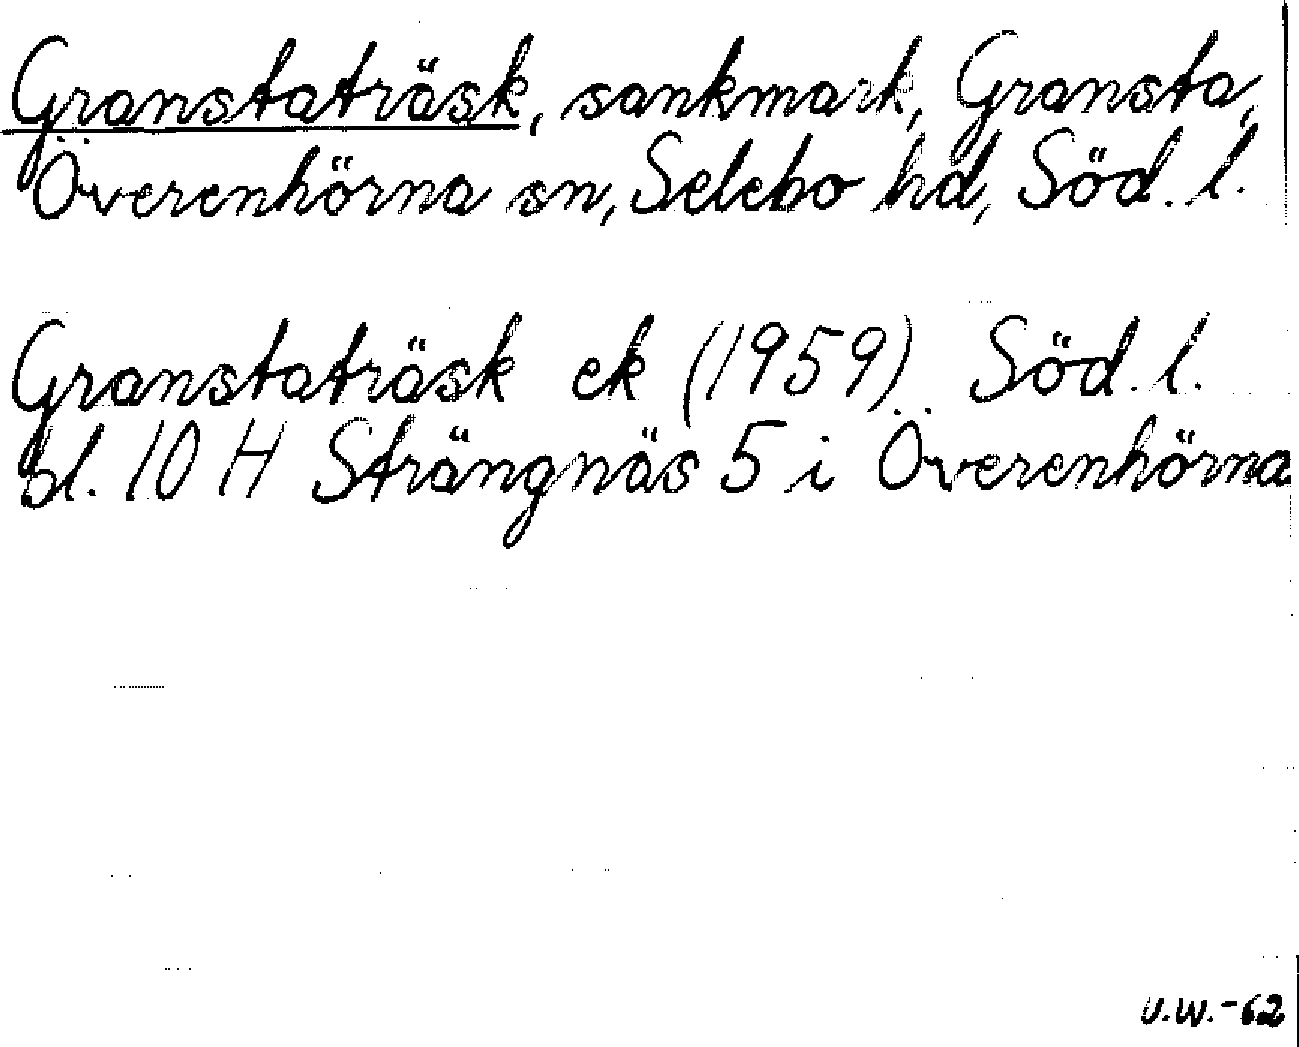 Granstaträsk, sankmark, Gransta,
Överenhörna sn, Selebo hd, Söd. l.
Granstaträsk ek (1959) Söd. l.
bl. 10 H Strängnäs 5 i Överenhörna
U.W.-62